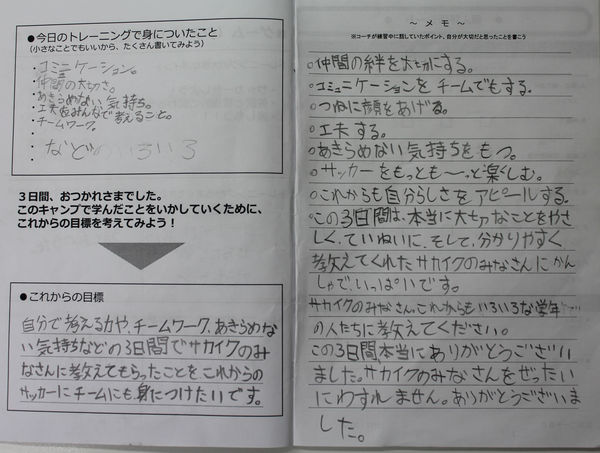 ●今日のトレーニングで身についたこと
(小さなことでもいいから、たくさん書いてみよう)
・コミニケーション。
・仲間の大切さ。
・あきらめない気持ち。
・工夫をみんなで考えること。
・チームワーク。
・
・などのいろいろ
・
3日間、おつかれさまでした。
このキャンプで学んだことをいかしていくために、
これからの目標を考えてみよう!
●これからの目標
自分で考える力や、チームワーク、あきらめな
い気持ちなどの3日間でサカイクのみ
なさんに教えてもらったことをこれからの
サッカーにチームにも身につけたいです。
～メモ～
※コーチが練習中に話していたポイント、自分が大切だと思ったことを書こう
○仲間の絆を大切にする。
○コミュニケーションをチームでもする。
○つねに顔をあげる。
○工夫する。
○あきらめない気持ちをもつ。
○サッカーをもっともーっと楽しむ。
○これからも自分らしさをアピールする。
○この3日間は、本当に大切なことをやさ
しく、ていねいに、そして、分かりやすく
教えてくれたサカイクのみなさんにかん
しゃで、いっぱいです。
サカイクのみなさん、これからもいろいろな学年
の人たちに教えてください。
この3日間本当にありがとうござい
ました。サカイクのみなさんをぜったい
にわすれません。ありがとうございま
した。